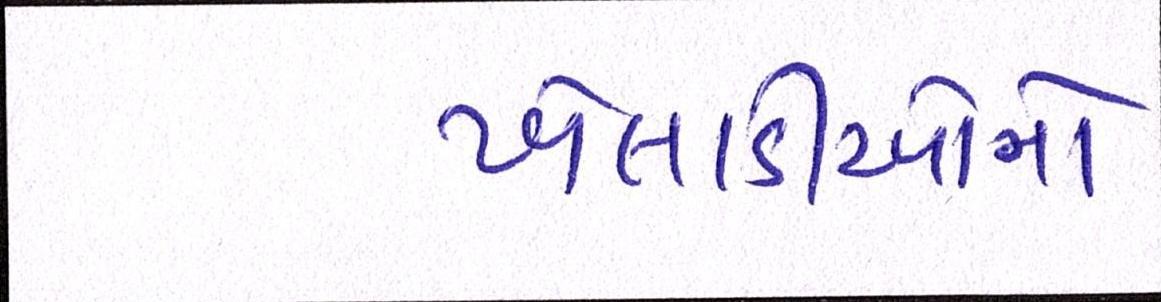 ખેલાડીઓનો